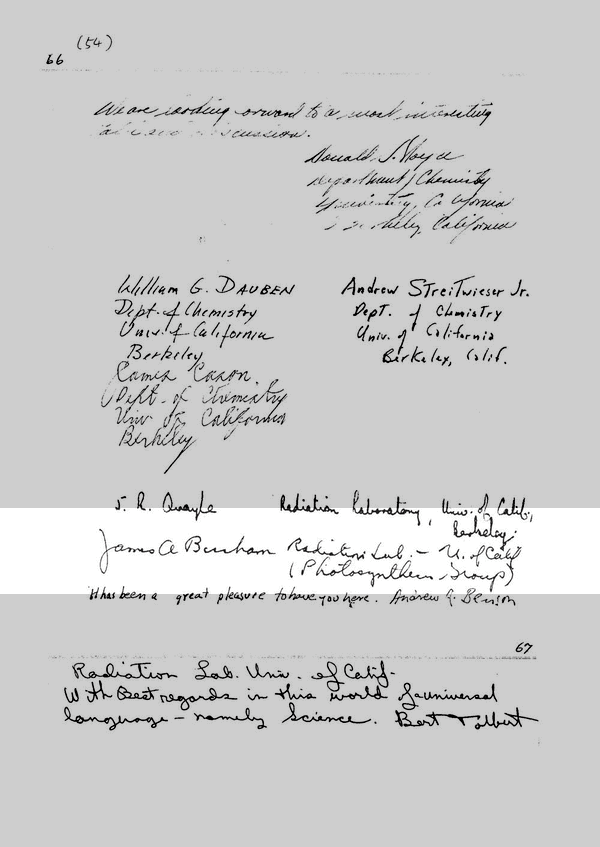 (54)
66
We are looking forward to a most interesting
discussion.
Donald S. Noyce
Department of Chemistry
University of California
Berkeley, California
William G. DAUBEN
Dept. of Chemistry
Univ. of California
Berkeley
Andrew Streitwieser Jr.
Dept. of Chemistry
Univ. of California
Berkeley, Calif.
James Cason.
Dept. of Chemistry
Univ of California
Berkeley
J. R. Quayle Radiation Laboratory, Univ. of Calif.,
Berkeley.
James A Bassham Radiation Lab. - U. of Calif
(Photosynthesis Group)
It has been a great pleasure to have you here. Andrew A. Benson
67
Radiation Lab. Univ. of Calif.
With Best regards in this world of a universal
language - namely Science. Bert Tolbert